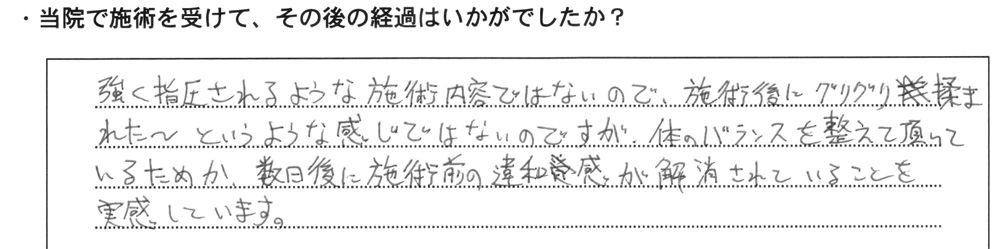 ・当院で施術を受けて、その後の経過はいかがでしたか？
強く指圧されるような施術内容ではないので、施術後にグリグリ揉ま
れた～というような感じではないのですが、体のバランスを整えて頂いて
いるためか、数日後に施術前の違和感が解消されていることを
実感しています。